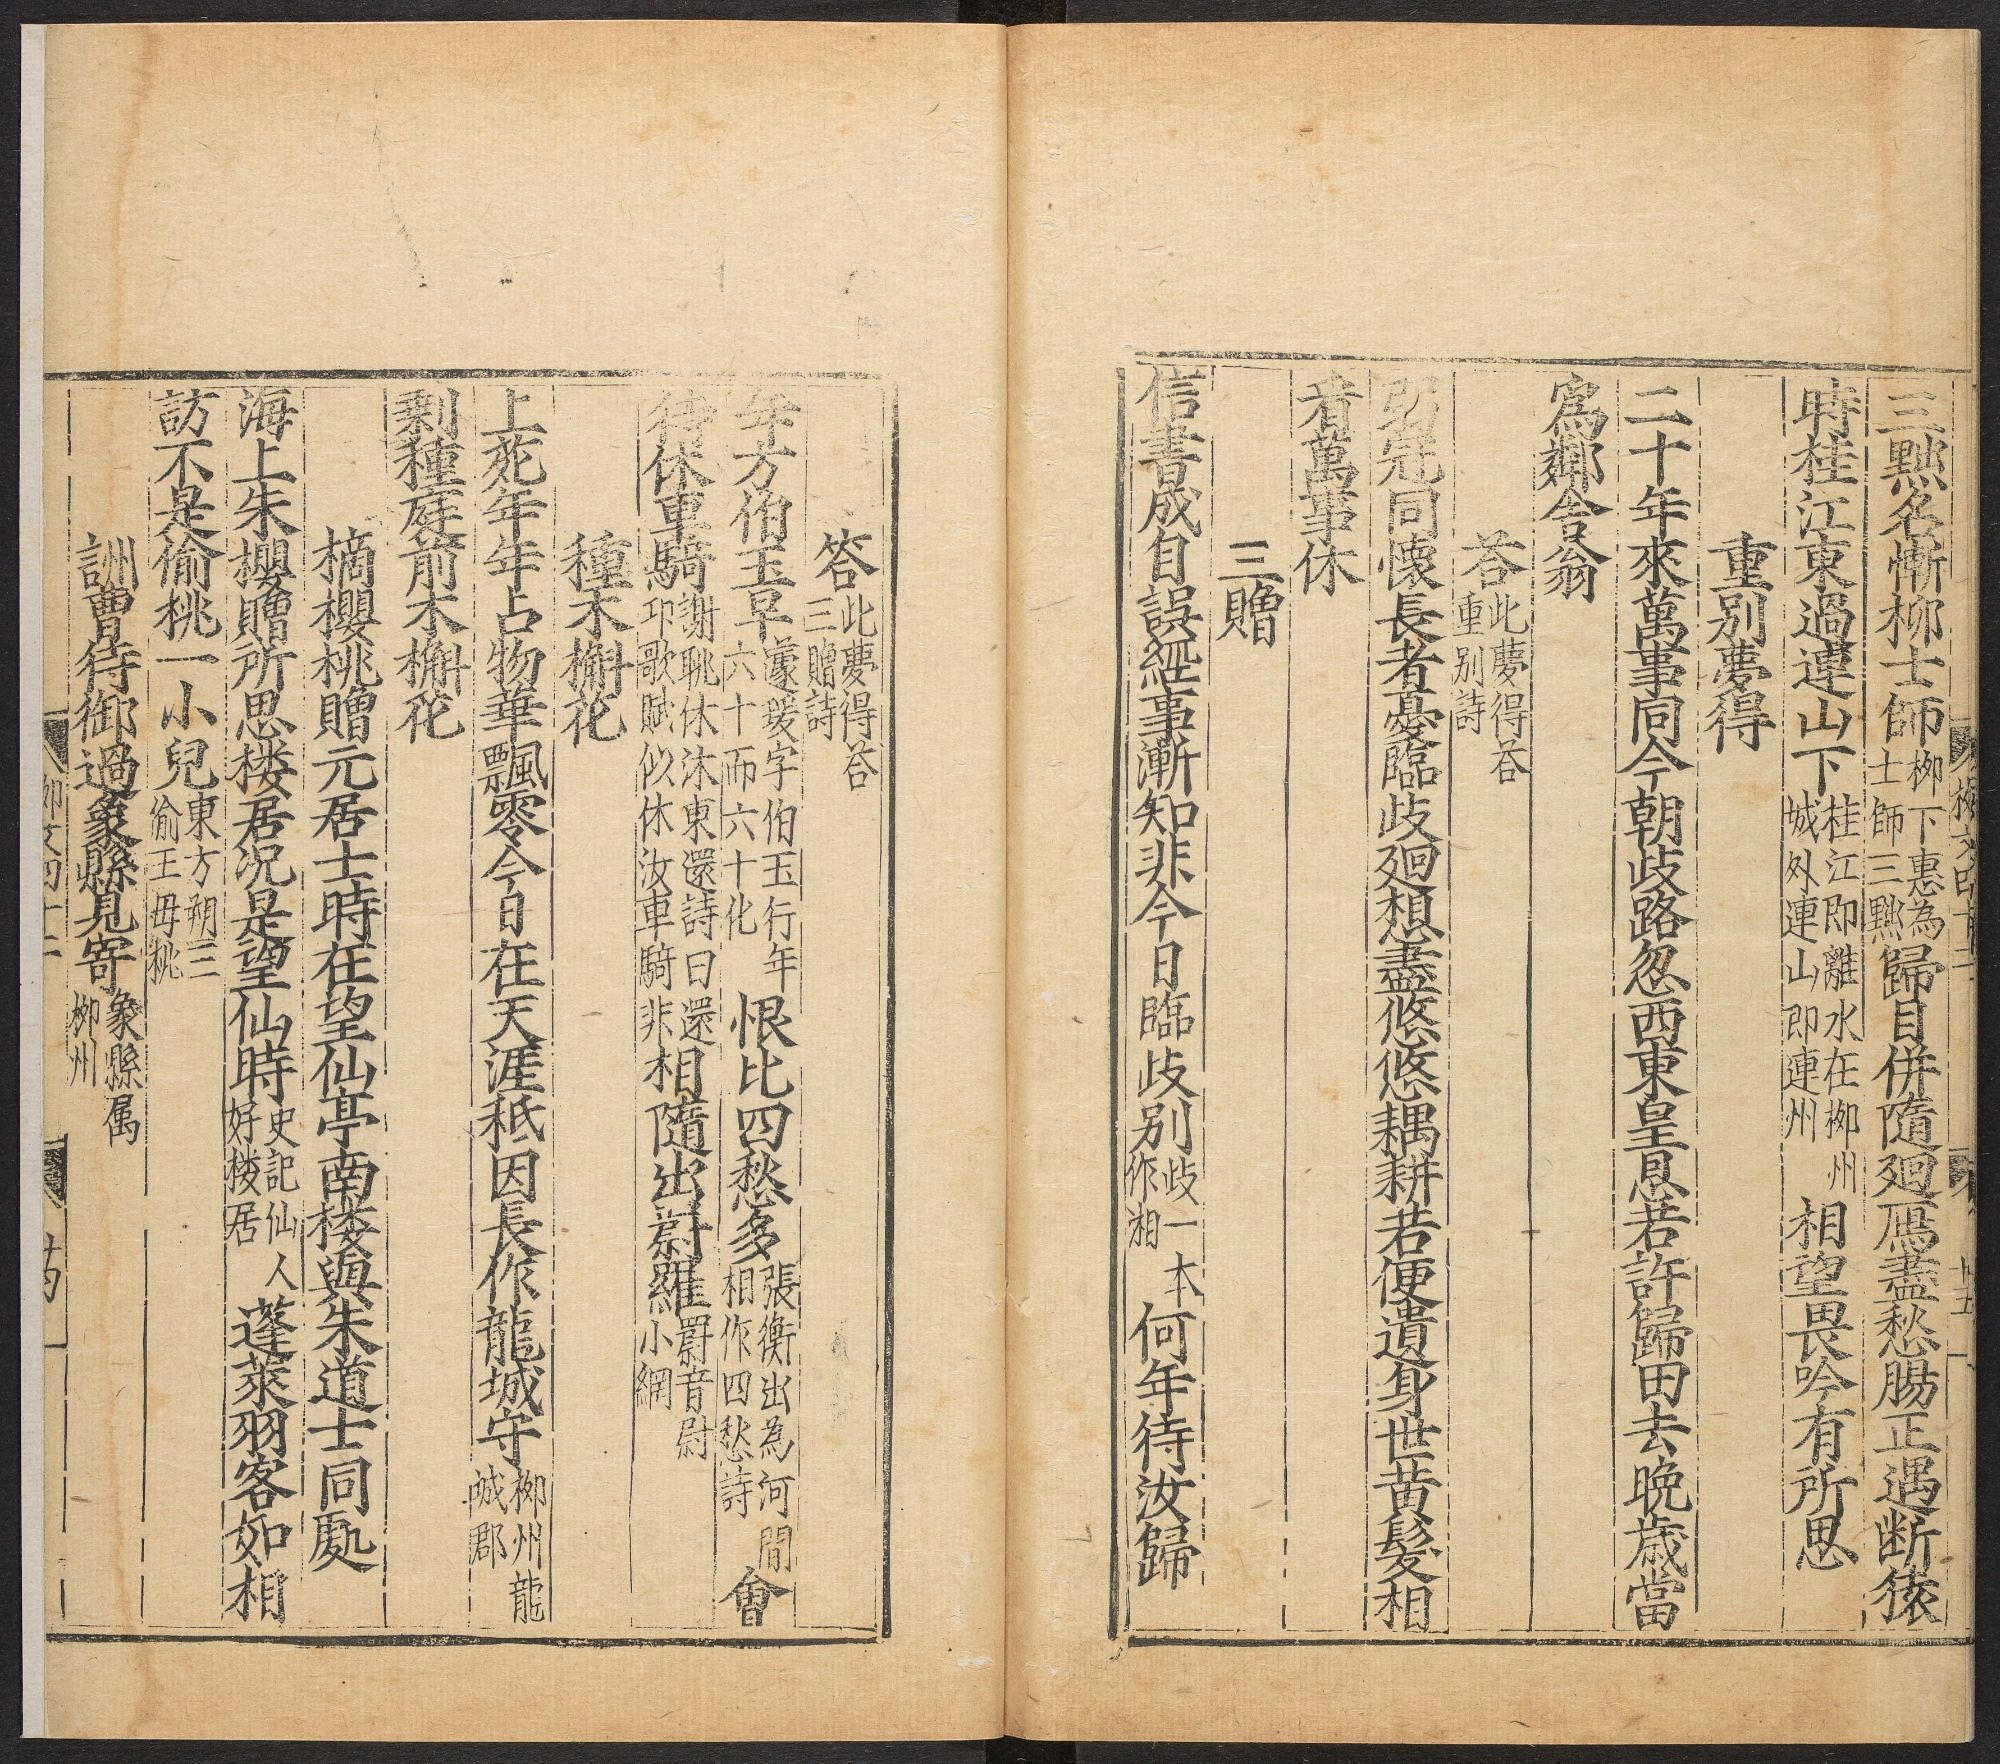 三黜名慚柳士師柳下惠為士師三黜歸目併隨廻鴈盡愁腸正遇断猿
時桂江東過連山下桂江即離水在柳州城外連山即連州相望畏吟有所思
重别夢得
二十年來萬事同今朝歧路忽西東皇恩若許歸田去晚歲當
爲鄰舍翁
荅此夢得荅重别詩
弱冠同懷長者憂臨歧廻想盡悠悠耦耕若便遺身世黄髮相
看萬事休
三贈
信書成自誤經事漸知非今日臨歧别歧一本作湘何年待汝歸
答此夢得荅三贈詩
年方伯玉早蘧瑗字伯玉行年六十而六十化恨比四愁多張衡出為河間相作四愁詩會
待休車騎謝眺休沐東還詩曰還卭歌賦似休汝車騎非相隨出罻羅罻音尉小網
種木槲花
上苑年年占物華飄零今日在天涯秖因長作龍城守柳州龍城郡
剩種庭前木槲花
摘櫻桃贈元居士時在望仙亭南楼與朱道士同處
海上朱櫻贈所思楼居况是望仙時史記仙人好楼居蓬萊羽客如相
訪不是偷桃一小兒東方朔三偷王母桃
詶曹侍御過象縣見寄象縣属柳州